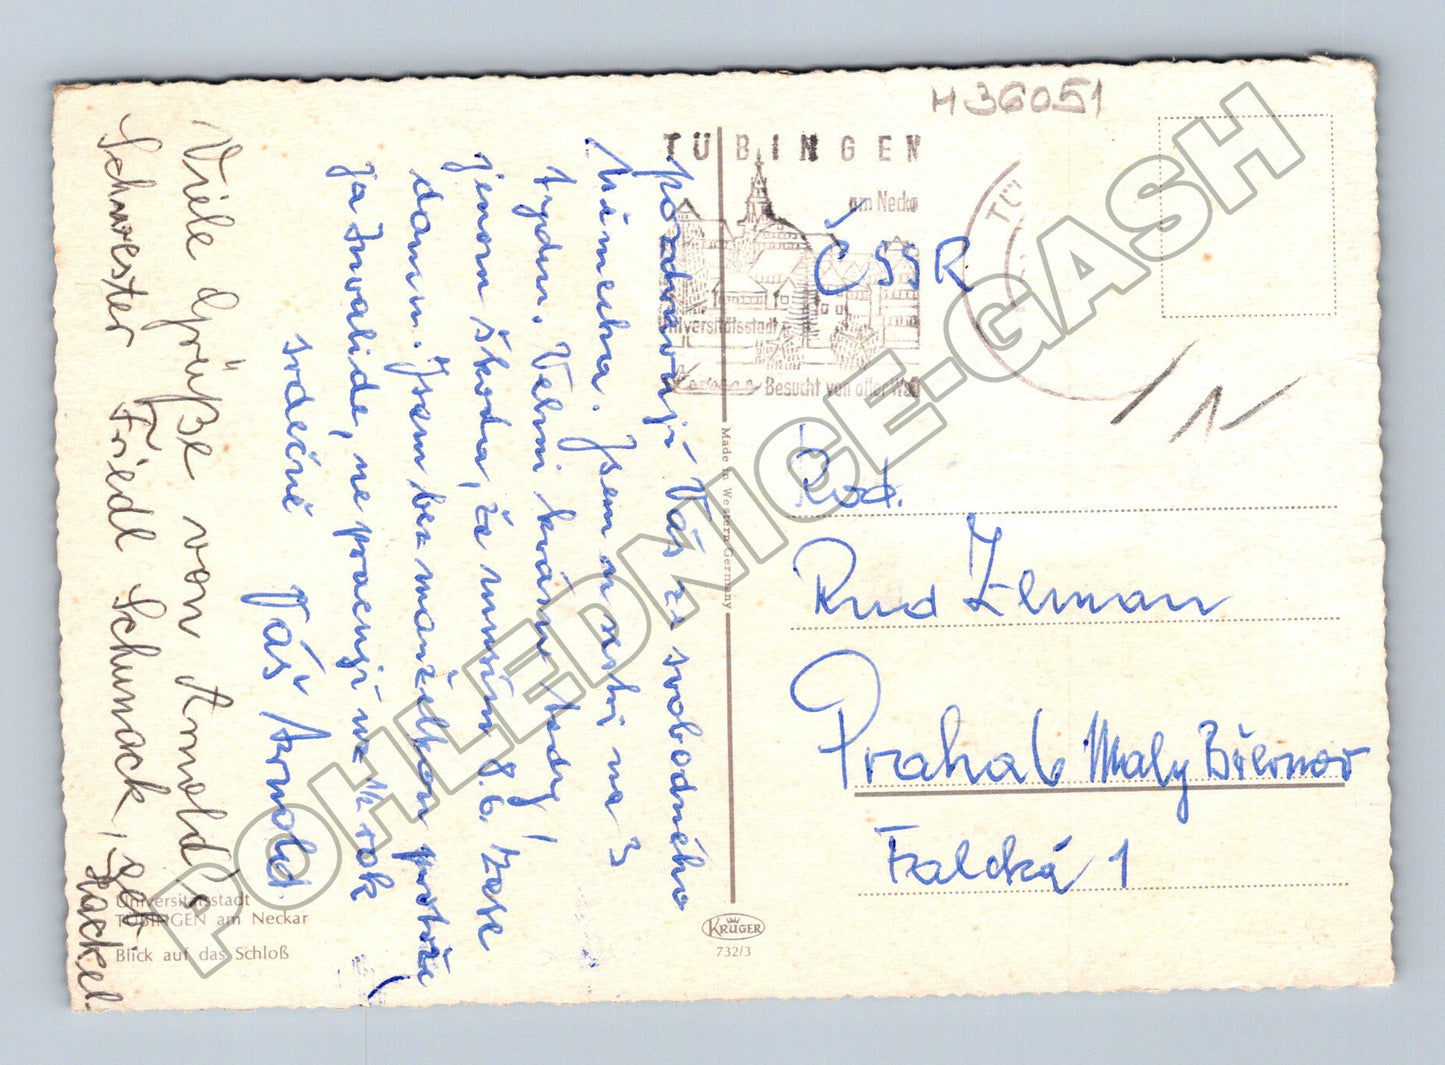 H 36051
TÜBINGEN
am Neckar
Universitätsstadt
Besucht von aller Welt
TÜ
ČSSR
Rod.
Rud Zeman
Praha 6 Malý Břevnov
Falcká 1
pozdravují Vás ze svobodného
Německa. Jsem na 3
týdnu. Velmi krásné
jenom škoda, že musím 8.6. zase
domu. Jsem bez manželkou protože
ja Invalide, ne pracují už ½ rok
srdečně
Váš Arnold.
Viele Grüße von Arnolds
Schwester Friedl Schumack, geb.
Hackel.
Universitätsstadt
TÜBINGEN am Neckar
Blick auf das Schloß
Made in Western Germany
KRÜGER
732/3
POHLEDNICE-GASH